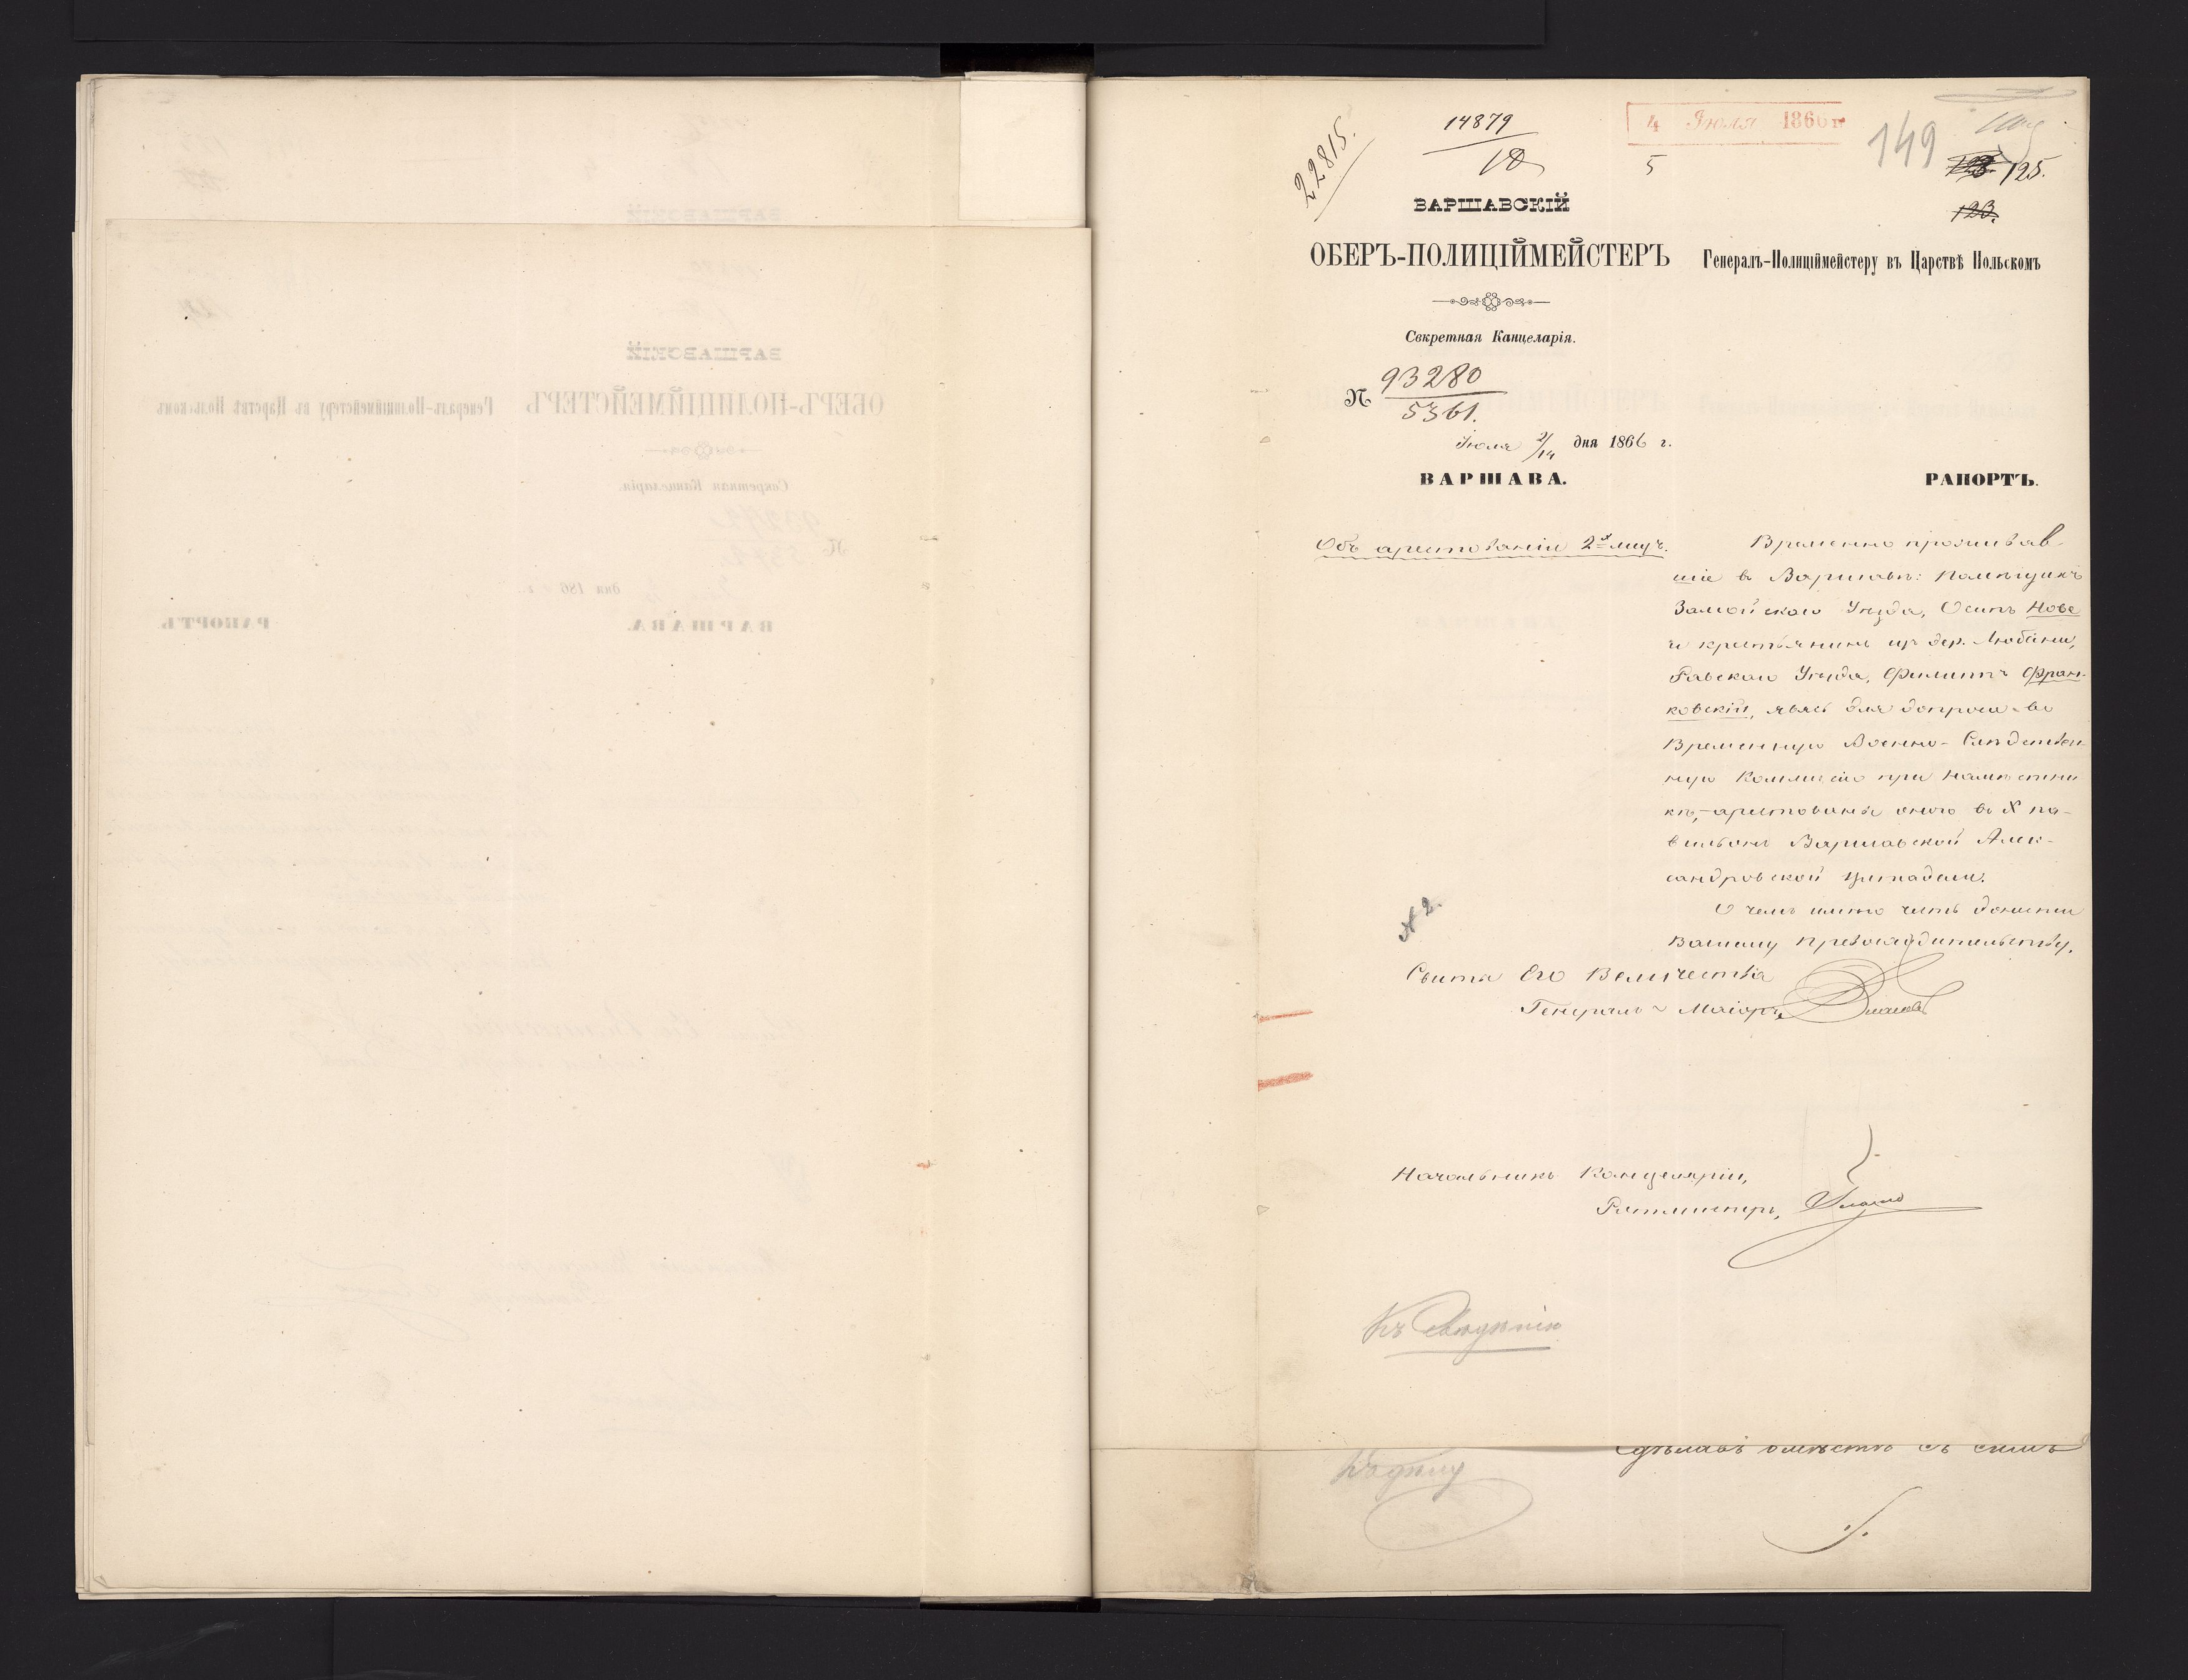 22815.
14879
18
4 Июля 1866 г.
5
149
125.
123.
ВАРШАВСКІЙ
ОБЕРЪ-ПОЛИЦІЙМЕЙСТЕРЪ
Генералъ-Полиціймейстеру въ Царствѣ Польскомъ
Секретная Канцеларія.
№ 93280
5361.
Іюля 2/14 дня 1866 г.
ВАРШАВА.
РАПОРТЪ.
Объ арестованіи 2хъ лицъ.
Временно проживав-
шіе въ Варшавѣ: помѣщикъ
Замойскаго Уѣзда, Осипъ Нове
и крестьянинъ изъ дер. Любани,
Равскаго Уѣзда, Филиппъ Фран-
ковскій, явясь для допроса во
Временную Военно-Слѣдствен-
ную Коммисію при Намѣстни
кѣ, арестованы оною въ X па-
вильонѣ Варшавской Алек-
сандровской цитадели.
О чемъ имѣю честь донести
Вашему Превосходительству.
№ 2.
Свиты Его Величества
Генералъ-Маіоръ,
Начальникъ Канцеляріи,
Ротмистръ,
Къ свѣдѣнію
сдѣлавъ вмѣстѣ съ симъ